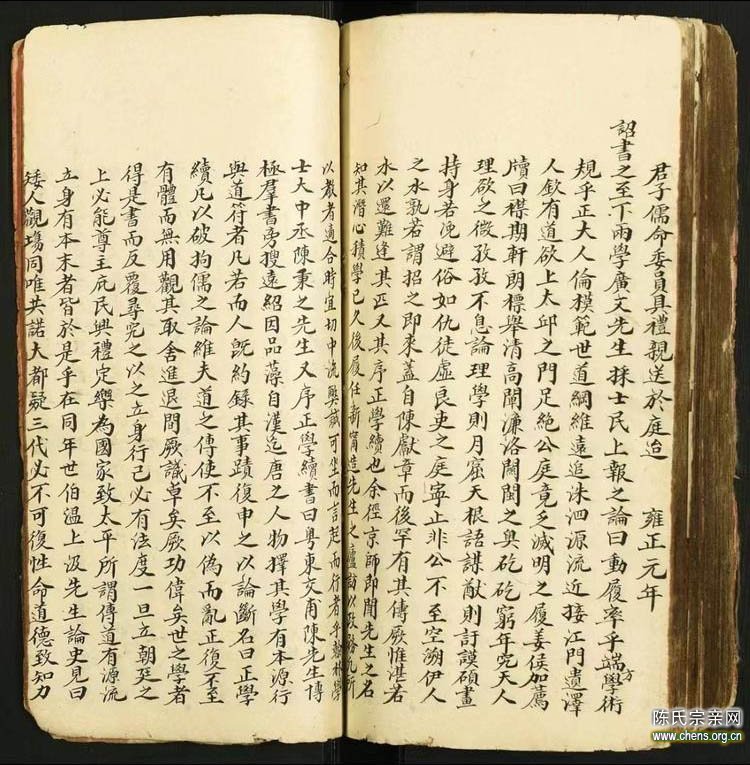 君子儒命委員具禮親送於庭迨 雍正元年
詔書之至下兩學廣文先生採士民上報之論曰動履率乎端方學術
規乎正大人倫模範世道綱維遠追洙泗源流近接江門遺澤
人欽有道欲上太邱之門足絕公庭竟乏滅明之履姜侯加薦
牘曰襟期軒朗標舉清高闡濂洛關閩之奧矻矻窮年究天人
理欲之微孜孜不息論理學則月窟天根語謀猷則訏謨碩畫
持身若浼避俗如仇徒虛良吏之庭寧止非公不至空溯伊人
之水孰若謂招之即來蓋自陳獻章而後罕有其傳厥惟湛若
水以還難逢其匹又其序正學續也余徑京師即聞先生之名
知其潛心積學已久後履任新甯造先生之廬訪以政務凡所
以教者適合時宜切中流弊誠可坐而言起而行者乎敦朴學
士大中丞陳秉之先生又序正學續書曰粤東交甫陳先生博
極羣書旁搜遠紹因品藻自漢迄唐之人物擇其學有本源行
與道符者凡若而人既約錄其事蹟復申之以論斷名曰正學
續凡以破拘儒之論維夫道之傳使不至以偽而亂正復不至
有體而無用觀其取舍進退間厥識卓矣厥功偉矣世之學者
得是書而反覆尋究之以之立身行己必有法度一旦立朝廷之
上必能尊主庇民興禮定樂為國家致太平所謂傳道有源流
立身有本末者皆於是乎在同年世伯溫上汲先生論史見曰
矮人觀塲同唯共諾大都疑三代必不可復性命道德致知力
陈氏宗亲网
www.chens.org.cn